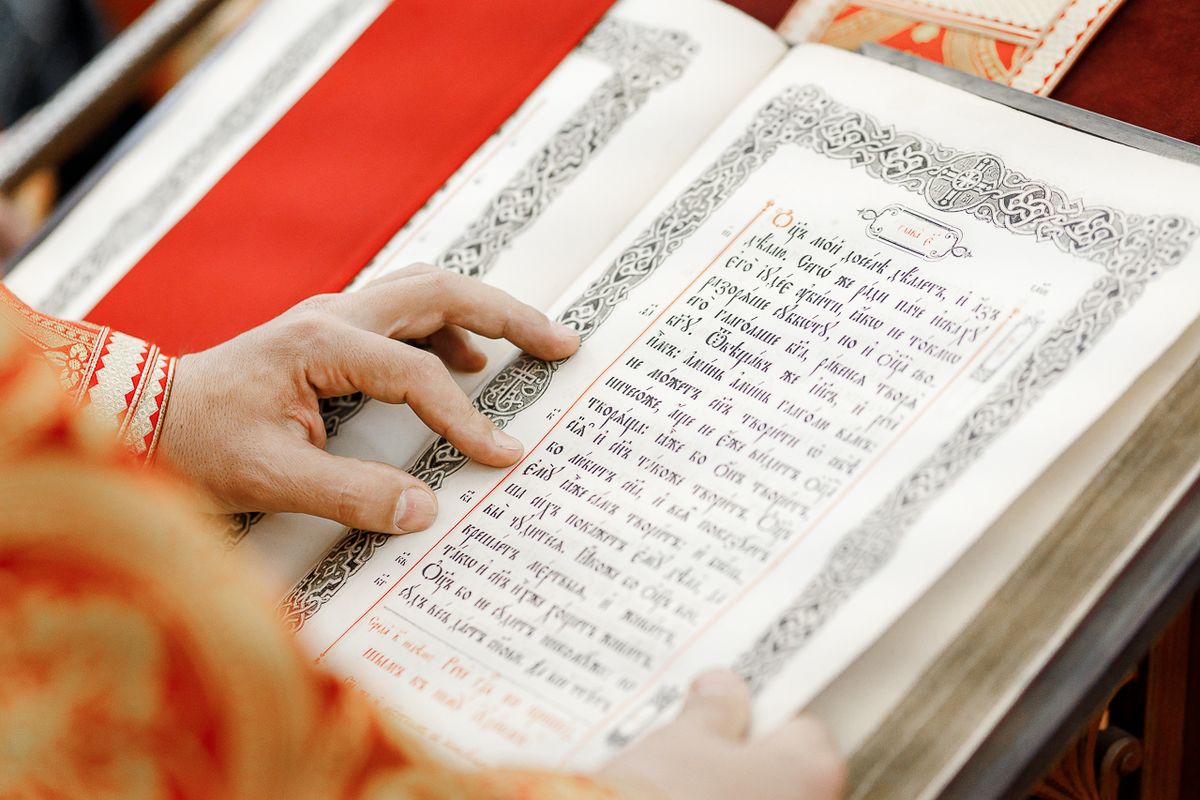 глава̀ є҃
Ѻ҆ц҃ъ мо́й досе́лѣ дѣ́лаетъ, и҆ а҆́зъ
дѣ́лаю. Сегѡ̀ же ра́ди па́че и҆ска́хꙋ
є҆го̀ і҆ꙋде́є ᲂу҆би́ти, ꙗ҆́кѡ не то́кмѡ
разорѧ́ше сꙋббѡ́тꙋ, но и҆ ѻ҆ц҃а̀ свое
го̀ глаго́лаше бг҃а, ра́венсѧ творѧ̀
бг҃ꙋ. Ѿвѣща́въ же і҆и҃съ, и҆ речѐ
и҆̀мъ: а҆ми́нь а҆ми́нь глаго́лю ва́мъ:
не мо́жетъ сн҃ъ твори́ти ѡ҆ себѣ̀
ничесѡ́же, а҆́ще не є҆́же ви́дитъ ѻ҆ц҃а̀
творѧ́ща: ꙗ҆̀же бо ѻ҆́нъ твори́тъ,
сїѧ̑ и҆ сн҃ъ та́кожде твори́тъ. Ѻ҆ц҃ъ
бо лю́битъ сн҃а, и҆ всѧ̑ показꙋ́етъ
є҆мꙋ̀ ꙗ҆̀же са́мъ твори́тъ: и҆ бѡ́ль
ша си́хъ пока́жетъ є҆мꙋ̀ дѣла̀, да
вы̀ чꙋдите́сѧ. Ꙗ҆́коже бо ѻ҆ц҃ъ вос
креша́етъ мє́ртвыѧ и҆ живи́тъ,
та́кѡ и҆ сн҃ъ и҆̀хже хо́щетъ живи́тъ.
Ѻ҆ц҃ъ бо не сꙋ́дитъ никомꙋ́же: но
сꙋ́дъ ве́сь дадѐ сн҃ови, да всѝ чтꙋ́тъ